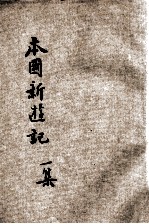 本國新遊記 一集